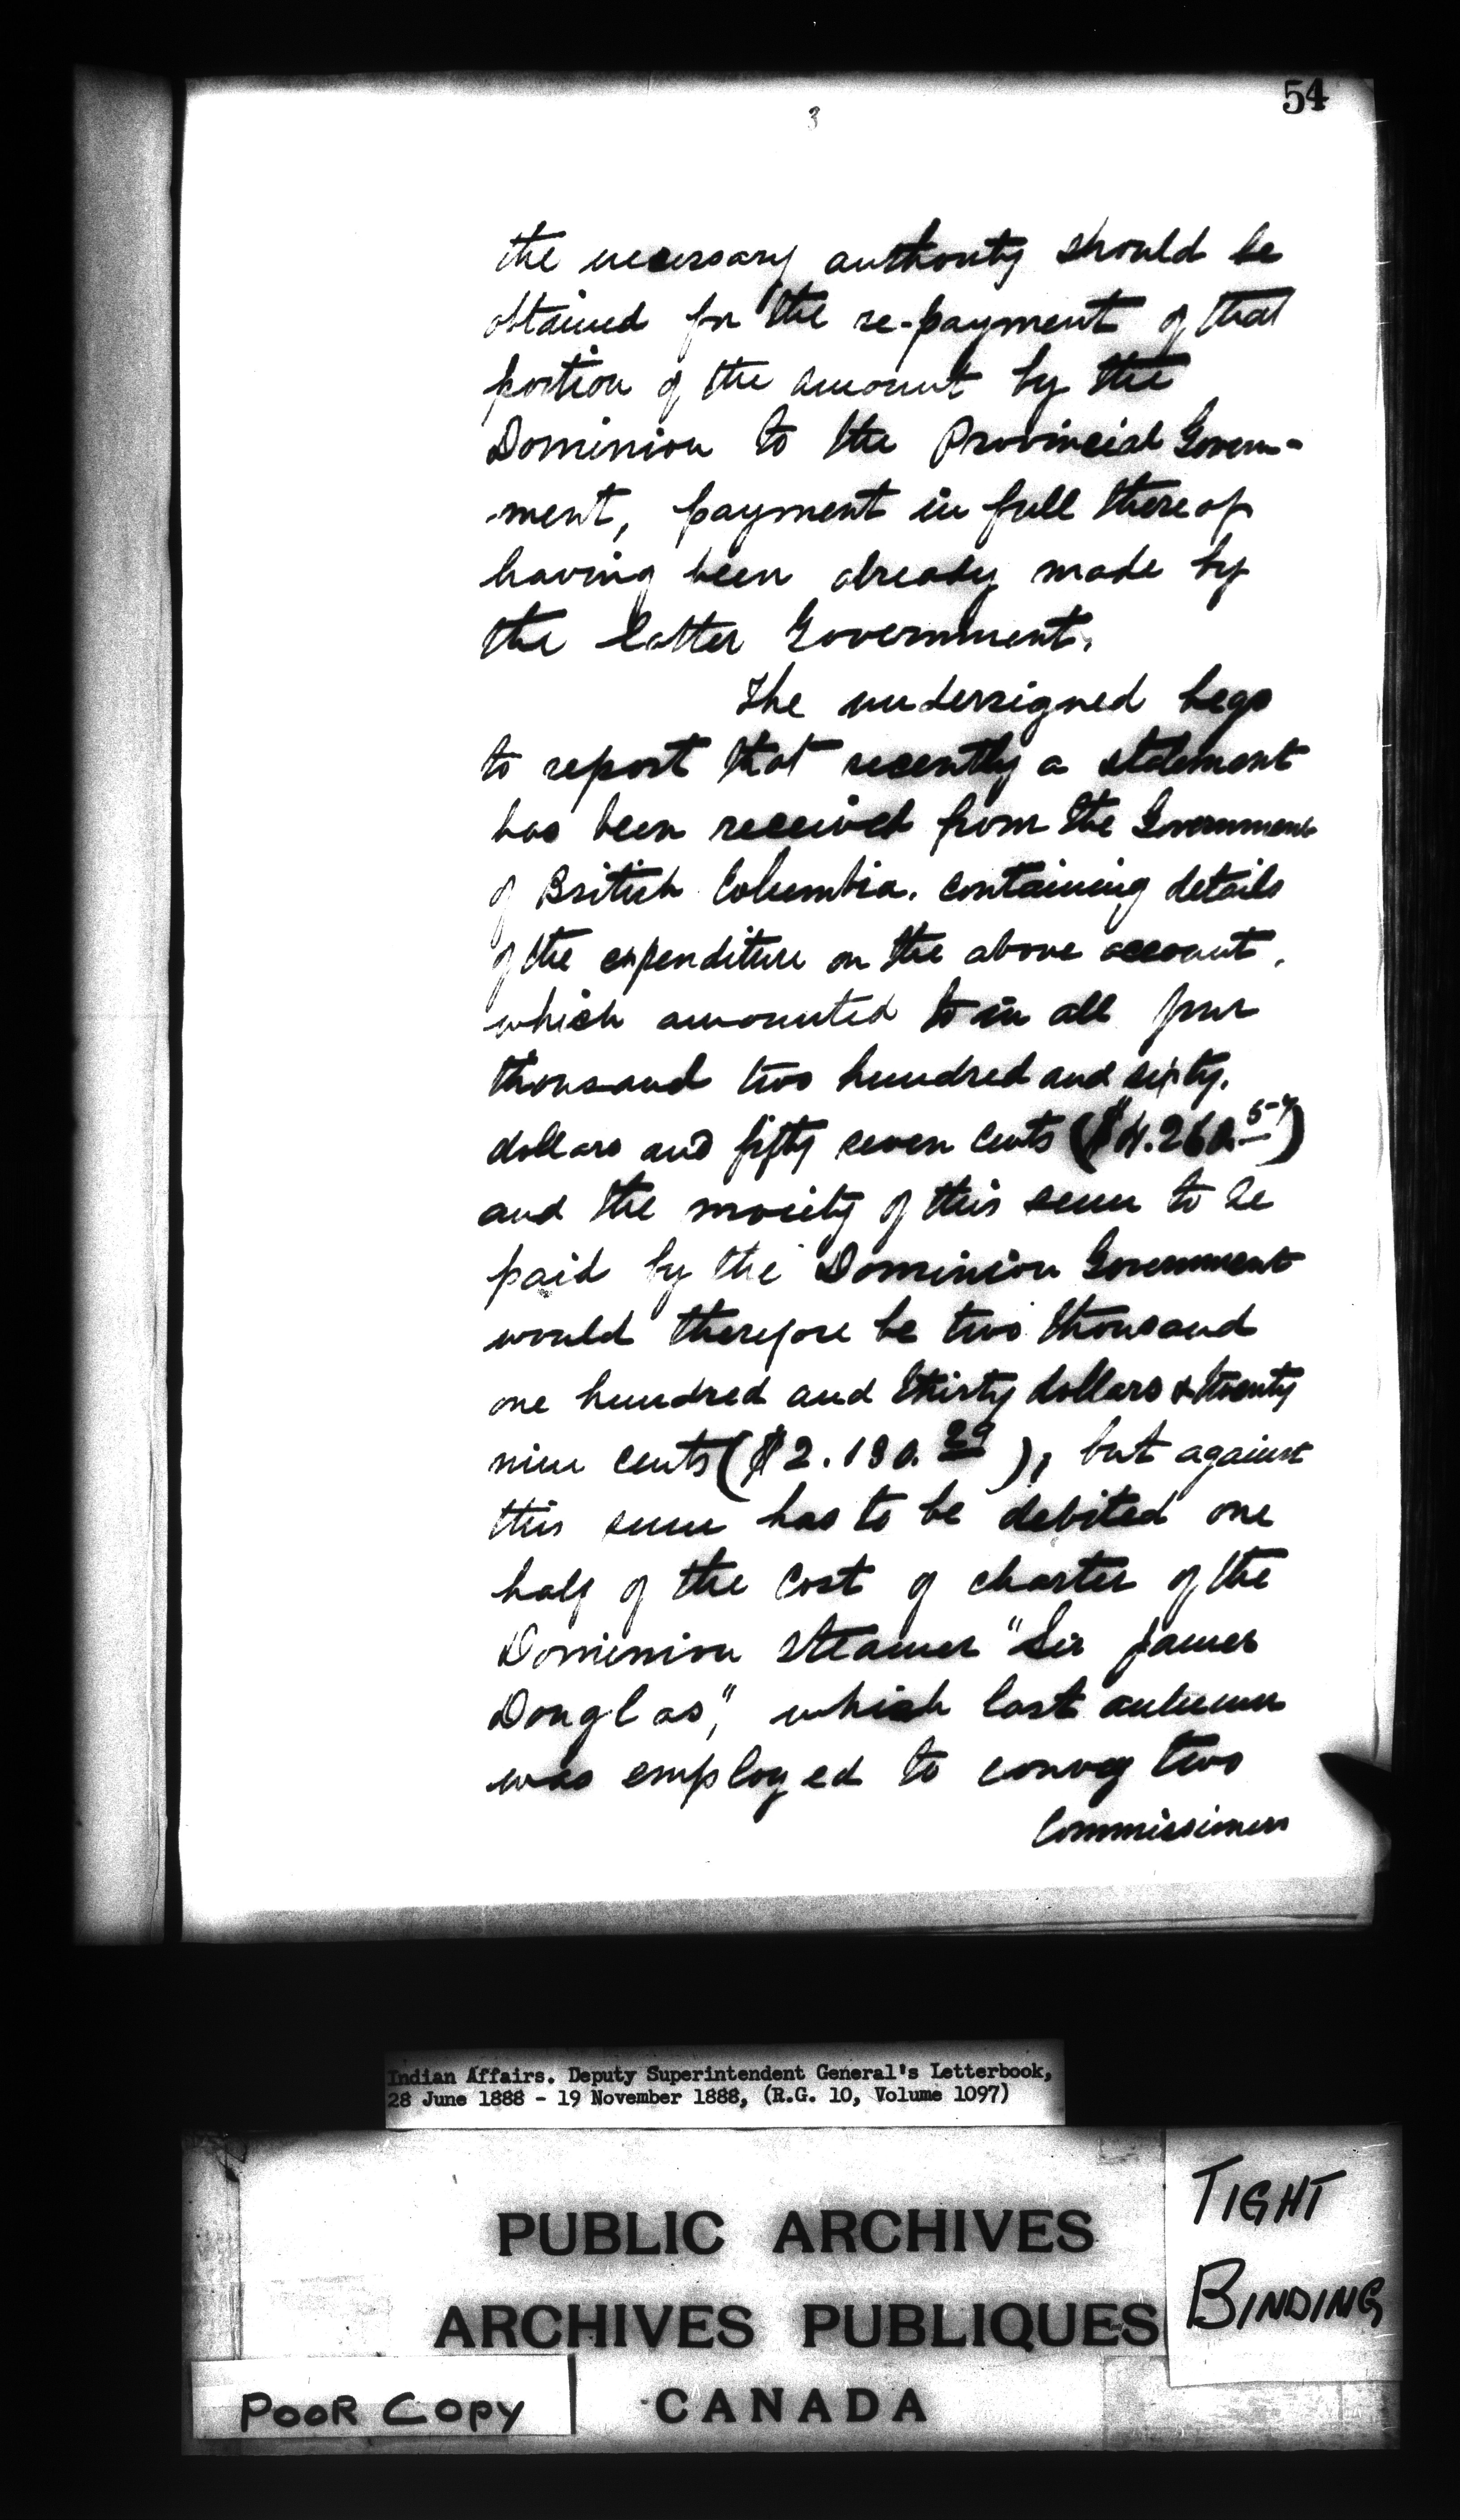 54
3
the necessary authority should be
obtained for the re-payment of that
portion of the amount by the
Dominion to the Provincial Govern-
-ment, payment in full thereof
having been already made by
the latter Government.
The undersigned begs
to report that recently a statement
has been received from the Government
of British Columbia. containing details
of the expenditure on the above account,
which amounted to in all four
thousand two hundred and sixty.
dollars and fifty seven cents ($4.260.57)
and the moiety of this sum to be
paid by the Dominion Government
would therefore be two thousand
one hundred and thirty dollars & twenty
nine cents ($2.130.29), but against
this sum has to be debited one
half of the cost of charter of the
Dominion steamer "Sir James
Douglas", which last autumn
was employed to convey two
Commissioners
Indian Affairs. Deputy Superintendent General's Letterbook,
28 June 1888 - 19 November 1888, (R.G. 10, Volume 1097)
PUBLIC ARCHIVES
ARCHIVES PUBLIQUES
CANADA
TIGHT
BINDING
POOR COPY